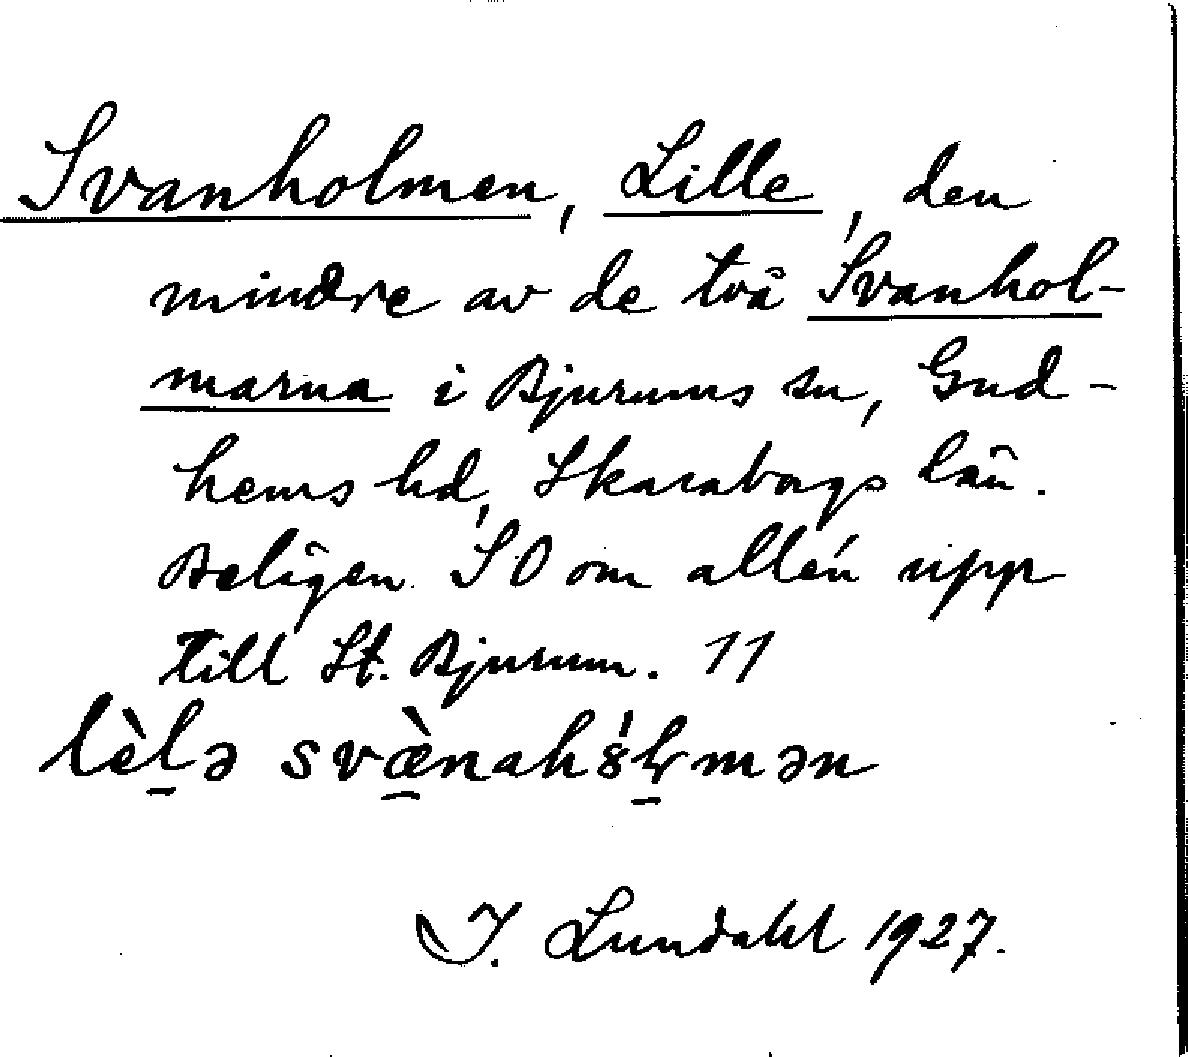 Svanholmen, Lille, den
mindre av de två Svanhol-
marna i Bjurums sn, Gud-
hems hd, Skaraborgs län.
Belägen SO om allén upp
till St. Bjurum. 11
lèlə svæ̀nah
J. Lundahl 1927.